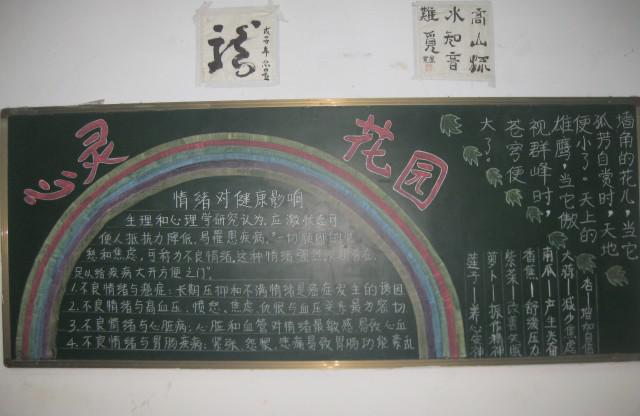 龙
高山流
水知音
难觅
心灵
花园
情绪对健康影响
生理和心理学研究认为,应激状态可
使人抵抗力降低,易罹患疾病,"一切顽固的
愁和焦虑,可
足以给疾病大开方便之门"。
1.不良情绪与癌症:长期压抑和不满情绪是癌症发生的诱因
2.不良情绪与高血压:愤怒、焦虑、仇恨与血压关系最为密切
3.不良情绪与心脏病:心脏和血管对情绪最敏感易致心血
4.不良情绪与胃肠疾病:紧张、怨恨、悲痛易致胃肠功能紊乱
墙角的花儿,当它
孤芳自赏时,天地
便小了。天上的
雄鹰,当它傲
视群峰时,
苍穹便
大了。
杏—增加自信
大蒜—减少焦虑
南瓜—产生笑容
香蕉—舒缓压力
紫菜—改善
萝卜—振作精神
莲子—养心安神